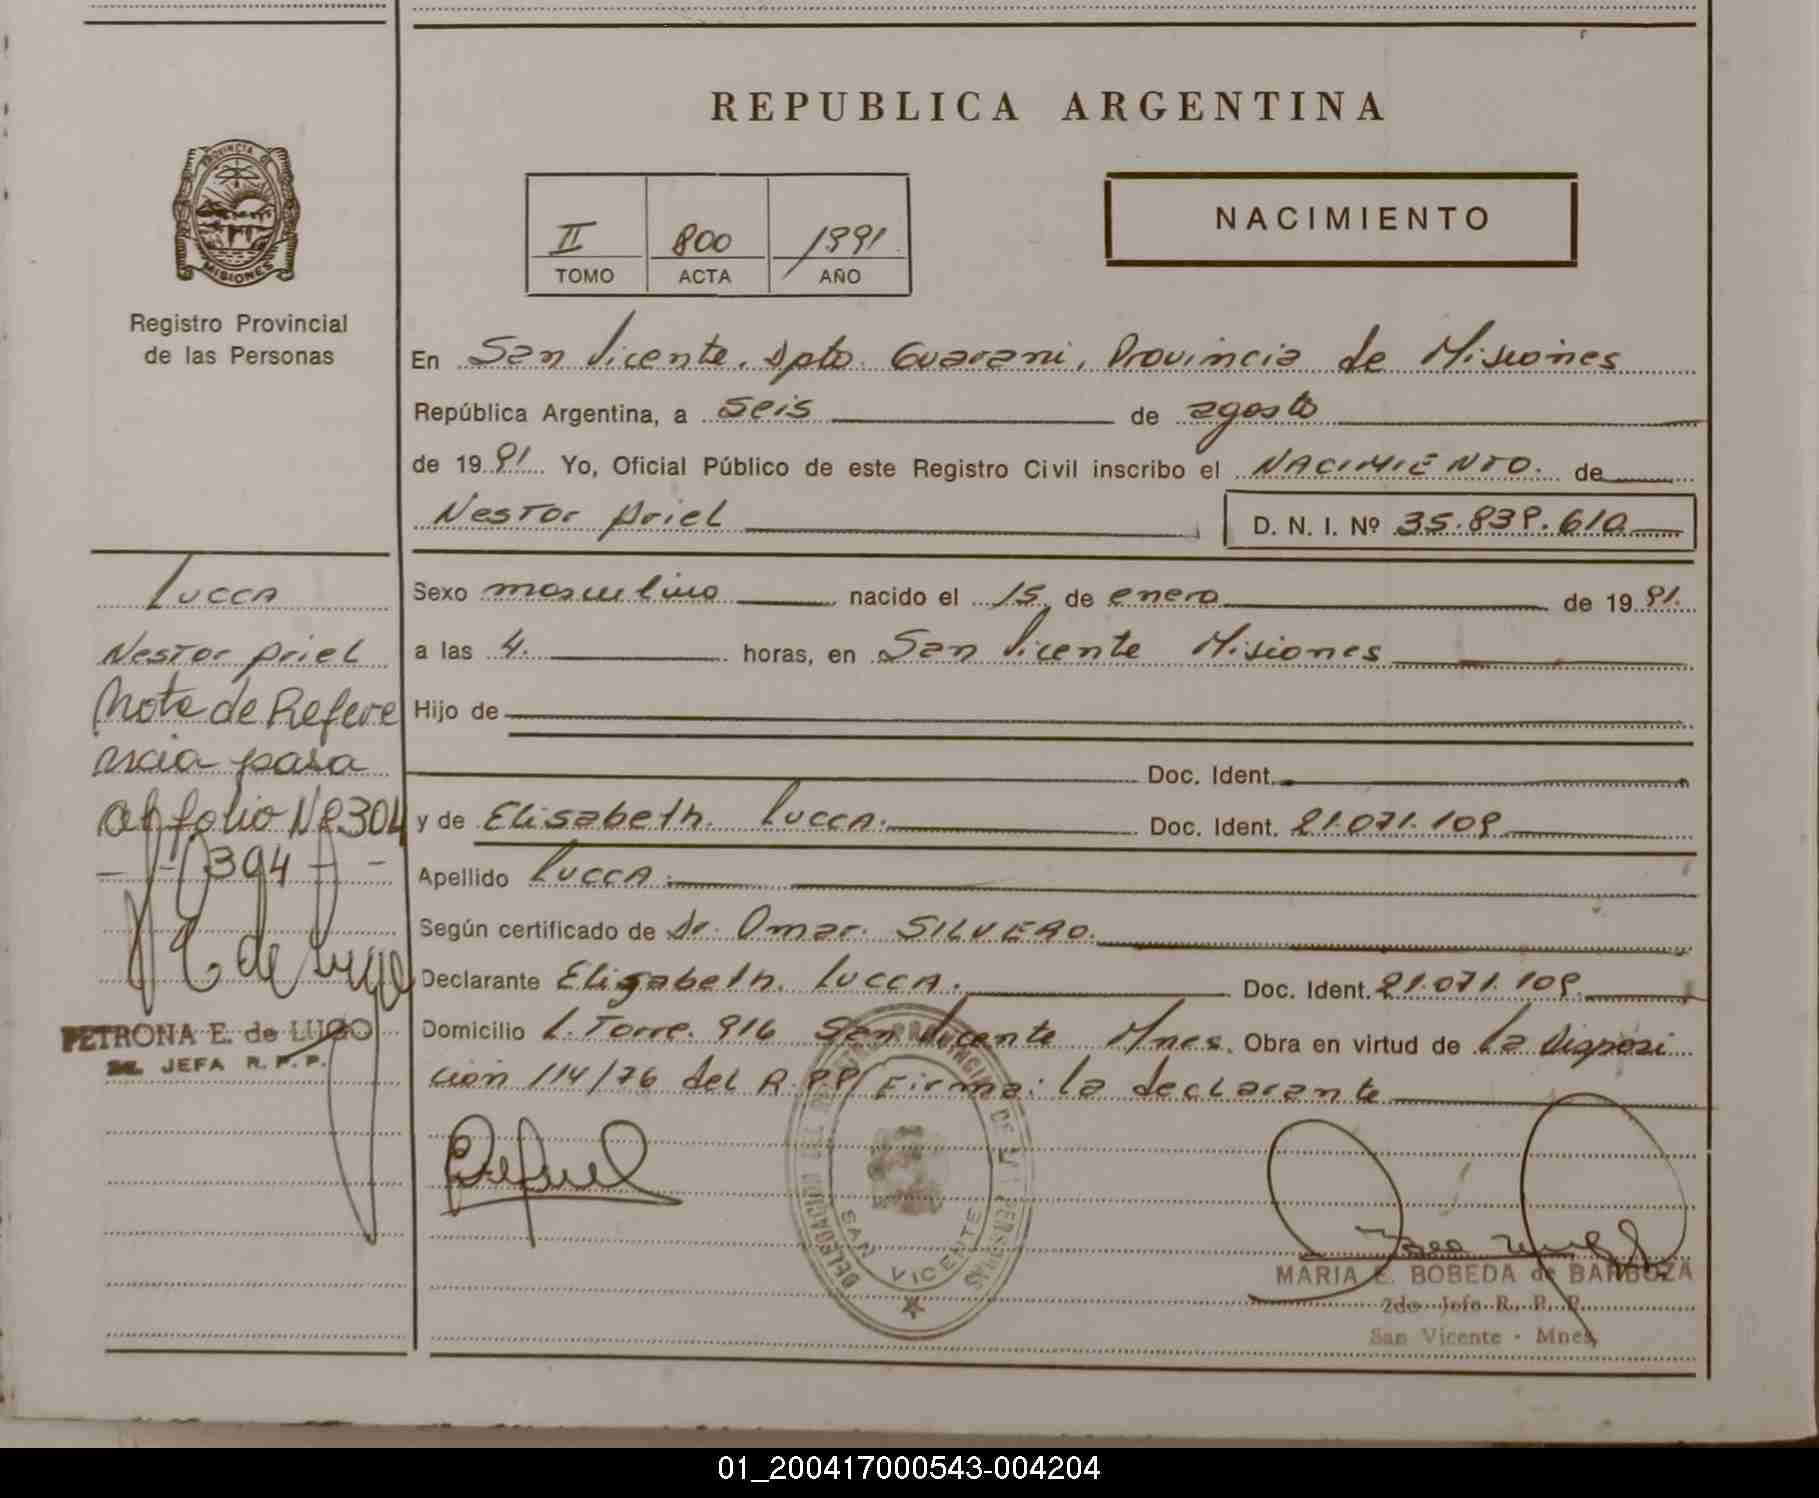 REPUBLICA ARGENTINA
PROVINCIA DE MISIONES
Registro Provincial
de las Personas
II 800 1991
TOMO ACTA AÑO
NACIMIENTO
En San Vicente, Dpto. Guarani, Provincia de Misiones
República Argentina, a seis de agosto
de 1991 Yo, Oficial Público de este Registro Civil inscribo el NACIMIENTO. de
Nestor Ariel D. N. I. Nº 35.839.610
Sexo masculino nacido el 15 de enero de 1991.
a las 4. horas, en San Vicente Misiones
Hijo de
Doc. Ident.
y de Elisabeth. Lucca. Doc. Ident. 21.071.109
Apellido Lucca.
Según certificado de Dr. Omar. SILVERO.
Declarante Elisabeth. Lucca. Doc. Ident. 21.071.109
Domicilio L. Torre. 916 San Vicente Mnes. Obra en virtud de la Disposi
cion 114/76 del R.P.P/ Firma: la declarante
Lucca
Nestor Ariel
Nota de Refere
ncia pasa
al folio Nº 304
- - 394 - -
P. E. de Lugo
PETRONA E. de LUGO
JEFA R. P. P.
DELEGACION DEL REGISTRO PROVINCIAL DE LAS PERSONAS
SAN VICENTE
MARIA E. BOBEDA de BARBOZA
2do Jefe R. P. P.
San Vicente - Mnes.
01_200417000543-004204